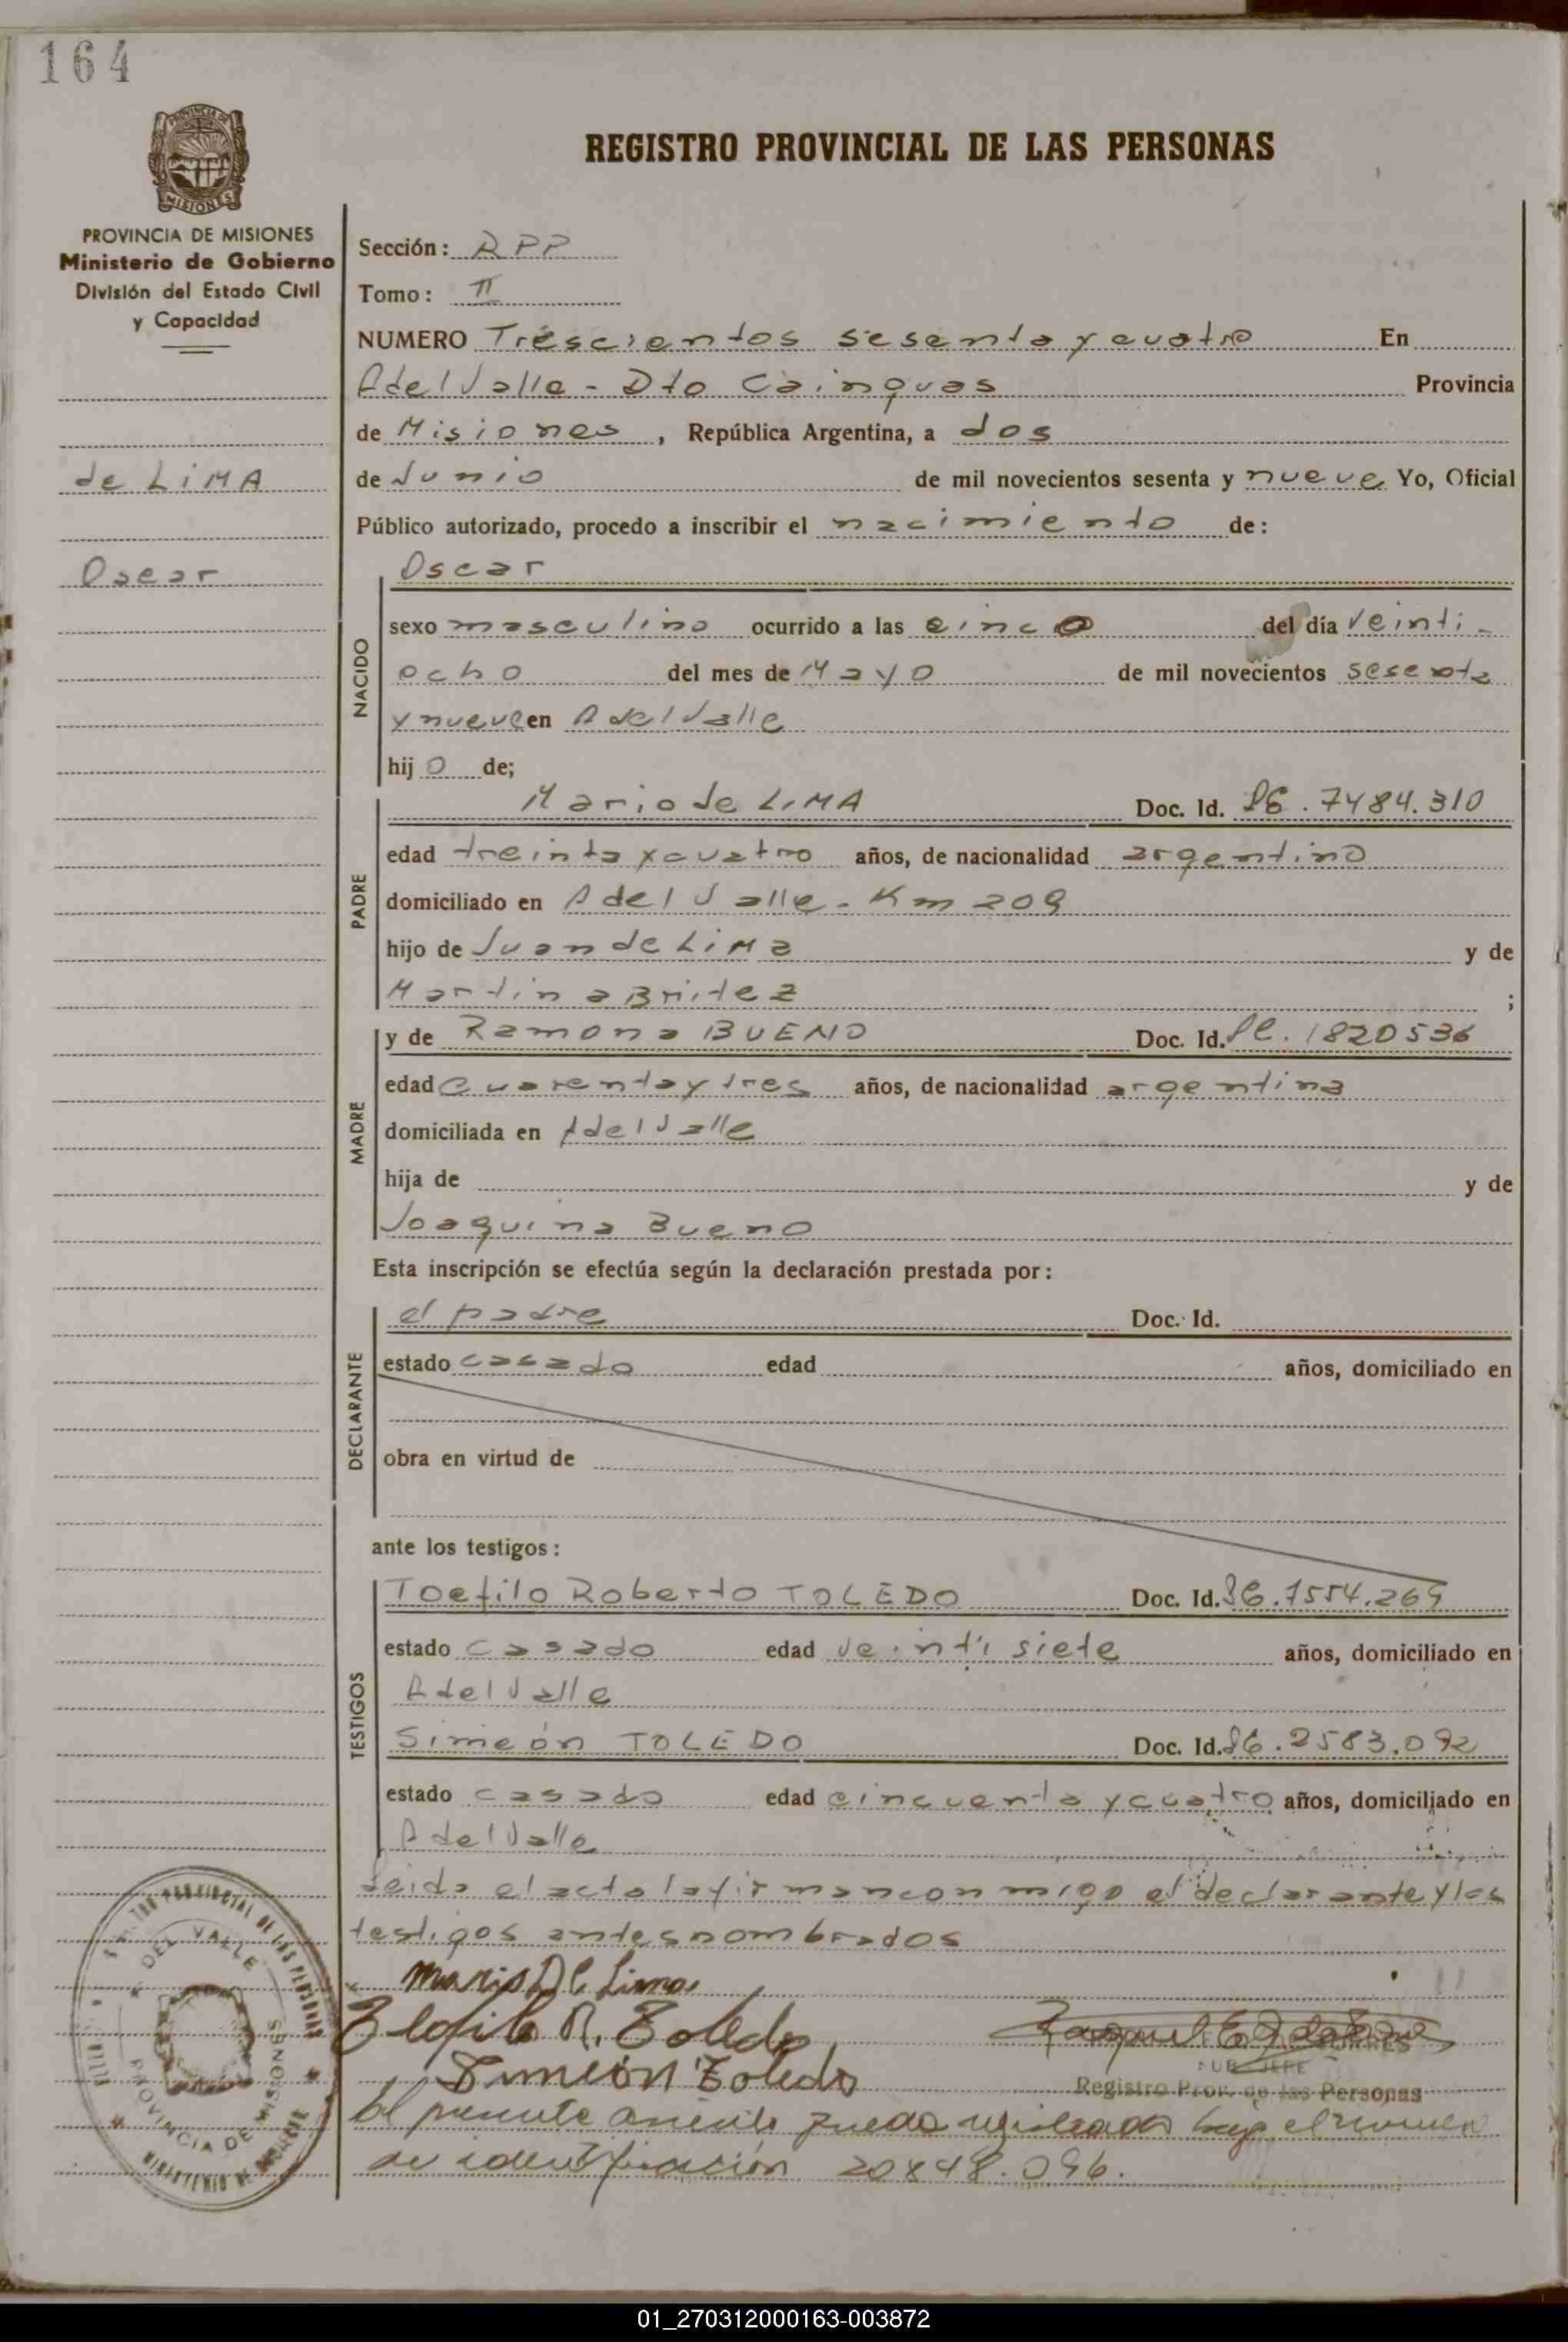 164
REGISTRO PROVINCIAL DE LAS PERSONAS
PROVINCIA DE MISIONES
Ministerio de Gobierno
División del Estado Civil
y Capacidad
de LiMA
Oscar
Sección: RPP
Tomo: II
NUMERO Trescientos sesenta y cuatro En
A del Valle - Dto Cainguas Provincia
de Misiones, República Argentina, a dos
de Junio de mil novecientos sesenta y nueve Yo, Oficial
Público autorizado, procedo a inscribir el nacimiento de:
Oscar
NACIDO
sexo masculino ocurrido a las cinco del día veinti-
ocho del mes de Mayo de mil novecientos sesenta
y nueve en A del Valle
hijo de;
PADRE
Mario de LiMA Doc. Id. 7484.310
edad treinta y cuatro años, de nacionalidad argentino
domiciliado en A del Valle - Km 209
hijo de Juan de LiMa y de
Martina Britez ;
MADRE
y de Ramona BUENO Doc. Id. 1820536
edad cuarenta y tres años, de nacionalidad argentina
domiciliada en A del Valle
hija de y de
Joaquina Bueno
Esta inscripción se efectúa según la declaración prestada por:
DECLARANTE
el padre Doc. Id.
estado casado edad años, domiciliado en
obra en virtud de
ante los testigos:
TESTIGOS
Toefilo Roberto TOLEDO Doc. Id. 7554.269
estado casado edad veinti siete años, domiciliado en
A del Valle
Simeón TOLEDO Doc. Id. 2583.092
estado casado edad cincuenta y cuatro años, domiciliado en
A del Valle
Leida el acta la firman con migo el declarante y los
testigos antes nombrados
Mario De Lima
R. Toledo
Simeón Toledo
SUB JEFE
Registro Prov. de las Personas
DEL VALLE
PROVINCIA DE MISIONES
El presente queda registrado bajo el
de identificación 20848.096.
01_270312000163-003872